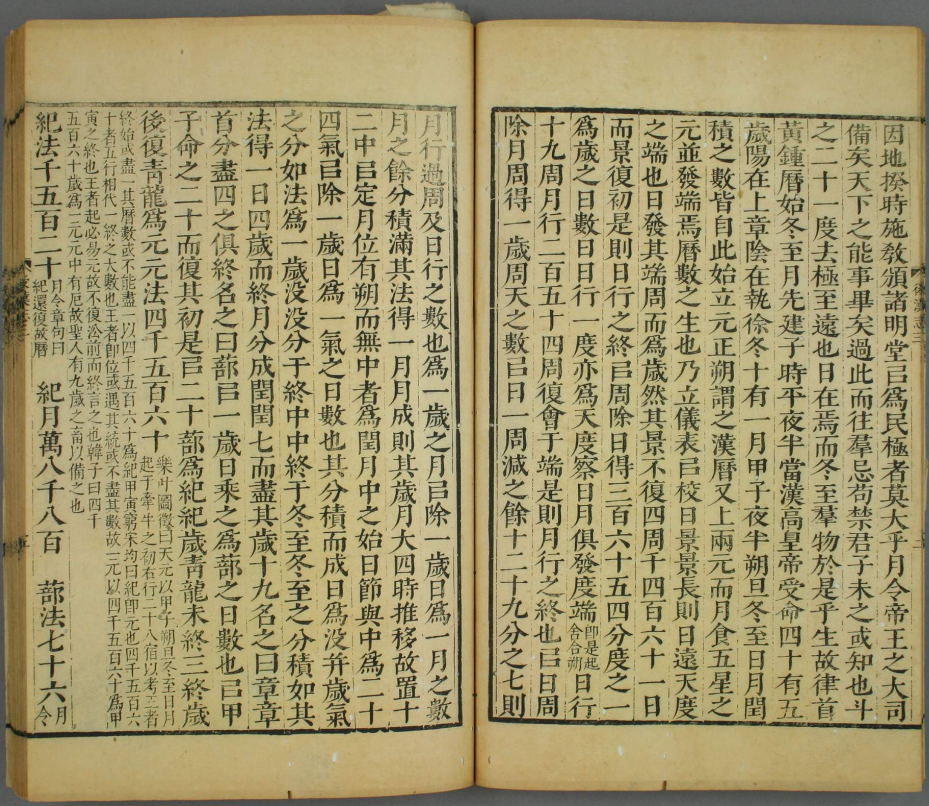 因地揆時施敎頒諸明堂㠯爲民極者莫大乎月令帝王之大司
備矣天下之能事畢矣過此而往羣忌苟禁君子未之或知也斗
之二十一度去極至遠也日在焉而冬至羣物於是乎生故律首
黃鍾曆始冬至月先建子時平夜半當漢高皇帝受命四十有五
歲陽在上章陰在執徐冬十有一月甲子夜半朔旦冬至日月閏
積之數皆自此始立元正朔謂之漢曆又上兩元而月食五星之
元並發端焉曆數之生也乃立儀表㠯校日景景長則日遠天度
之端也日發其端周而爲歲然其景不復四周千四百六十一日
而景復初是則日行之終㠯周除日得三百六十五四分度之一
爲歲之日數日日行一度亦爲天度察日月俱發度端卽是起舍合朔日行
十九周月行二百五十四周復會于端是則月行之終也㠯日周
除月周得一歲周天之數㠯日一周減之餘十二十九分之七則
月行過周及日行之數也爲一歲之月㠯除一歲日爲一月之數
月之餘分積滿其法得一月月成則其歲月大四時推移故置十
二中㠯定月位有朔而無中者爲閏月中之始日節與中爲二十
四氣㠯除一歲日爲一氣之日數也其分積而成日爲没幷歲氣
之分如法爲一歲没没分于終中中終于冬至冬至之分積如其
法得一日四歲而終月分成閏閏七而盡其歲十九名之曰章章
首分盡四之俱終名之曰蔀㠯一歲日乘之爲蔀之日數也㠯甲
子命之二十而復其初是㠯二十蔀爲紀紀歲靑龍未終三終歲
後復靑龍爲元元法四千五百六十樂叶圖徵曰天元以甲子朔旦冬至日月
起于牽牛之初右行二十八宿以考王者
終始或盡一其曆數或不能盡一以四千五百六十爲紀甲寅窮宋均曰紀卽元也四千五百六
十者五行相代一終之大數也王者卽位或遇其統或不盡其數故一元以四千五百六十爲甲
寅之終也王者起必易元故不復沿前而終言之也韓子曰四千
五百六十歲爲一元元中有厄故聖人有九歲之畜以備之也
紀法千五百二十月令章句曰紀還復故曆　紀月萬八千八百　蔀法七十六月令